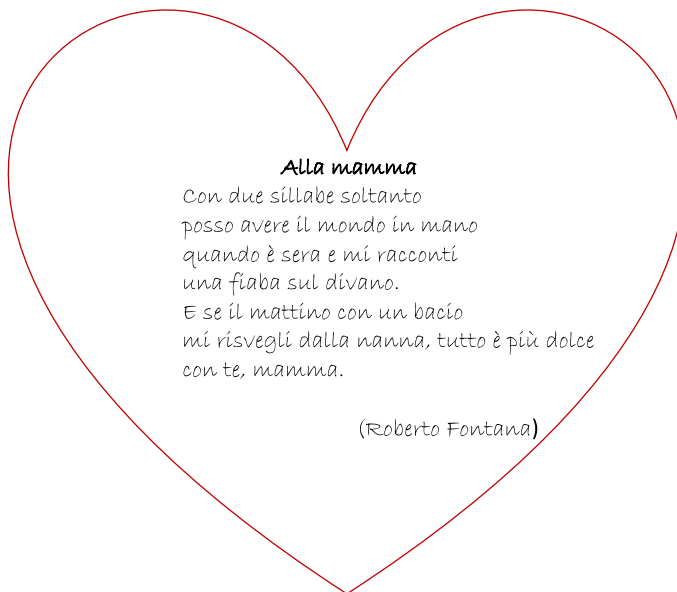 Alla mamma
Con due sillabe soltanto
posso avere il mondo in mano
quando è sera e mi racconti
una fiaba sul divano.
E se il mattino con un bacio
mi risvegli dalla nanna, tutto è più dolce
con te, mamma.
(Roberto Fontana)